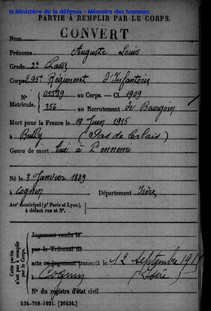 © Ministère de la défense - Mémoire des hommes
PARTIE À REMPLIR PAR LE CORPS.
Nom CONVERT
Prénoms Auguste Louis
Grade 2e Classe
Corps 295e Régiment d'Infanterie
N° 05529 au Corps. — Cl 1909
Matricule. 356 au Recrutement de Bourgoin
Mort pour la France le 19 Juin 1915
à Bully (Pas de Calais)
Genre de mort Tué à l'ennemi
Né le 3 Janvier 1889
à Cognin Département Isère
Arr' municipal (p' Paris et Lyon),
à défaut rue et N°.
Cette partie
n'est pas à remplir
par le Corps.
Jugement rendu le
par le Tribunal de
acte ou jugement transcrit le 12 septembre
à Cognin (Isère)
N° du registre d'état civil